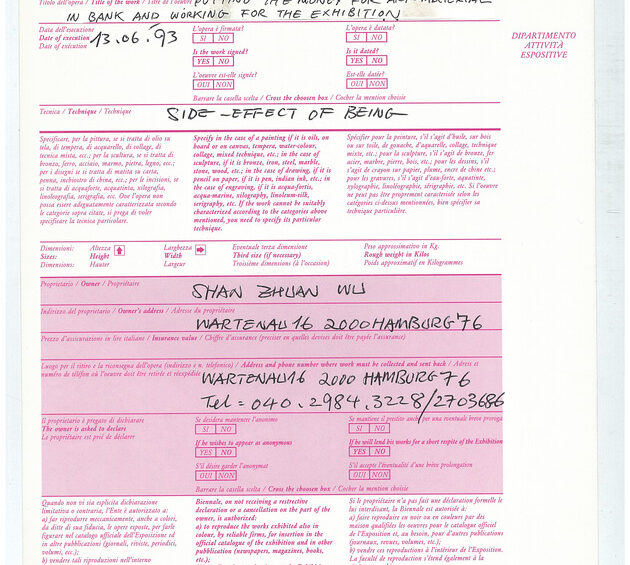 Titolo dell'opera / Title of the work / Titre de l'oeuvre PUTTING THE MONEY FOR ART-MATERIAL
IN BANK AND WORKING FOR THE EXHIBITION
Data dell'esecuzione
Date of execution 13.06.'93
Date of exécution
L'opera è firmata?
SI NO
Is the work signed?
YES NO
L'oeuvre est-elle signée?
OUI NON
L'opera è datata?
SI NO
Is it dated?
YES NO
Est-elle datée?
OUI NON
Barrare la casella scelta / Cross the choosen box / Cocher la mention choisie
DIPARTIMENTO
ATTIVITÀ
ESPOSITIVE
Tecnica / Technique / Technique SIDE-EFFECT OF BEING
Specificare, per la pittura, se si tratta di olio su
tela, di tempera, di acquarello, di collage, di
tecnica mista, ecc.; per la scultura, se si tratta di
bronzo, ferro, acciaio, marmo, pietra, legno, ecc.;
per i disegni se si tratta di matita su carta,
penna, inchiostro di china, ecc.; per le incisioni, se
si tratta di acquaforte, acquatinta, xilografia,
linoleografia, serigrafia, ecc. Ove l'opera non
possa essere adeguatamente caratterizzata secondo
le categorie sopra citate, si prega di voler
specificare la tecnica particolare.
Specify in the case of a painting if it is oil, on
board or on canvas, tempera, water-colour,
collage, mixed technique, etc.; in the case of
sculpture, if it is bronze, iron, steel, marble,
stone, wood, etc.; in the case of drawing, if it is
pencil on paper, if it is pen, indian ink, etc.; in
the case of engraving, if it is acqua-fortis,
acqua-marine, xilography, linoleum-silk,
serigraphy, etc. If the work cannot be suitably
characterized according to the categories above
mentioned, you need to specify its particular
technique.
Spécifier pour la peinture, s'il s'agit d'huile, sur bois
ou sur toile, de gouache, d'aquarelle, collage, technique
mixte, etc.; pour la sculpture, s'il s'agit de bronze, fer
acier, marbre, pierre, bois, etc.; pour les dessins, s'il
s'agit de crayon sur papier, plume, encre de chine etc.;
pour les gravures, s'il s'agit d'eau-forte, aquatinte,
xylographie, linoléographie, sérigraphie, etc. Si l'oeuvre
ne peut pas être proprement caractérisée selon les
catégories ci-dessus mentionnées, bien spécifier sa
technique particulière.
Dimensioni: Altezza Larghezza Eventuale terza dimensione Peso approssimativo in Kg.
Sizes: Height Width Third size (if necessary) Rough weight in Kilos
Dimensions: Hauter Largeur Troisième dimensions (à l'occasion) Poids approximatif en Kilogrammes
Proprietario / Owner / Propriétaire SHAN ZHUAN WU
Indirizzo del proprietario / Owner's address / Adresse du propriétaire
WARTENAU 16 2000 HAMBURG 76
Prezzo d'assicurazione in lire italiane / Insurance value / Chiffre d'assurance (préciser en quelles devises doit être payée l'assurance)
Luogo per il ritiro e la riconsegna dell'opera (indirizzo e n. telefonico) / Address and phone number where work must be collected and sent back / Adress et
numéro de téléphon où l'oeuvre doit être retirée et réexpédiée WARTENAU 16 2000 HAMBURG 76
Tel = 040.2984.3228/2703686
Il proprietario è pregato di dichiarare
The owner is asked to declare
Le propriétaire est prié de déclarer
Se desidera mantenere l'anonimo
SI NO
If he wishes to appear as anonymous
YES NO
S'il désire garder l'anonymat
OUI NON
Se mantiene il prestito anche per una eventuale breve proroga
SI NO
If he will lend his works for a short respite of the Exhibition
YES NO
S'il accepte l'éventualité d'une brève prolongation
OUI NON
Barrare la casella scelta / Cross the choosen box / Cocher la mention choisie
Quando non vi sia esplicita dichiarazione
limitativa o contraria, l'Ente è autorizzato a:
a) far riprodurre meccanicamente, anche a colori,
da ditte di sua fiducia, le opere esposte, per farle
figurare nel catalogo ufficiale dell'Esposizione ed
in altre pubblicazioni (giornali, riviste, periodici,
volumi, ecc.);
b) vendere tali riproduzioni nell'interno
Biennale, on not receiving a restrictive
declaration or a cancellation on the part of the
owner, is authorized:
a) to reproduce the works exhibited also in
colour, by reliable firms, for insertion in the
official catalogue of the exhibition and in other
pubblication (newspapers, magazines, books,
etc.);
Si le propriétaire n'a pas fait une déclaration formelle le
lui interdisant, la Biennale est autorisée à:
a) faire reproduire en noir ou en couleurs par des
maison qualifiées les oeuvres pour le catalogue officiel
de l'Exposition et, au besoin, pour d'autres publications
(journaux, revues, volumes, etc.);
b) vendre ces reproductions à l'intérieur de l'Exposition.
La faculté de reproduction s'étend également à la